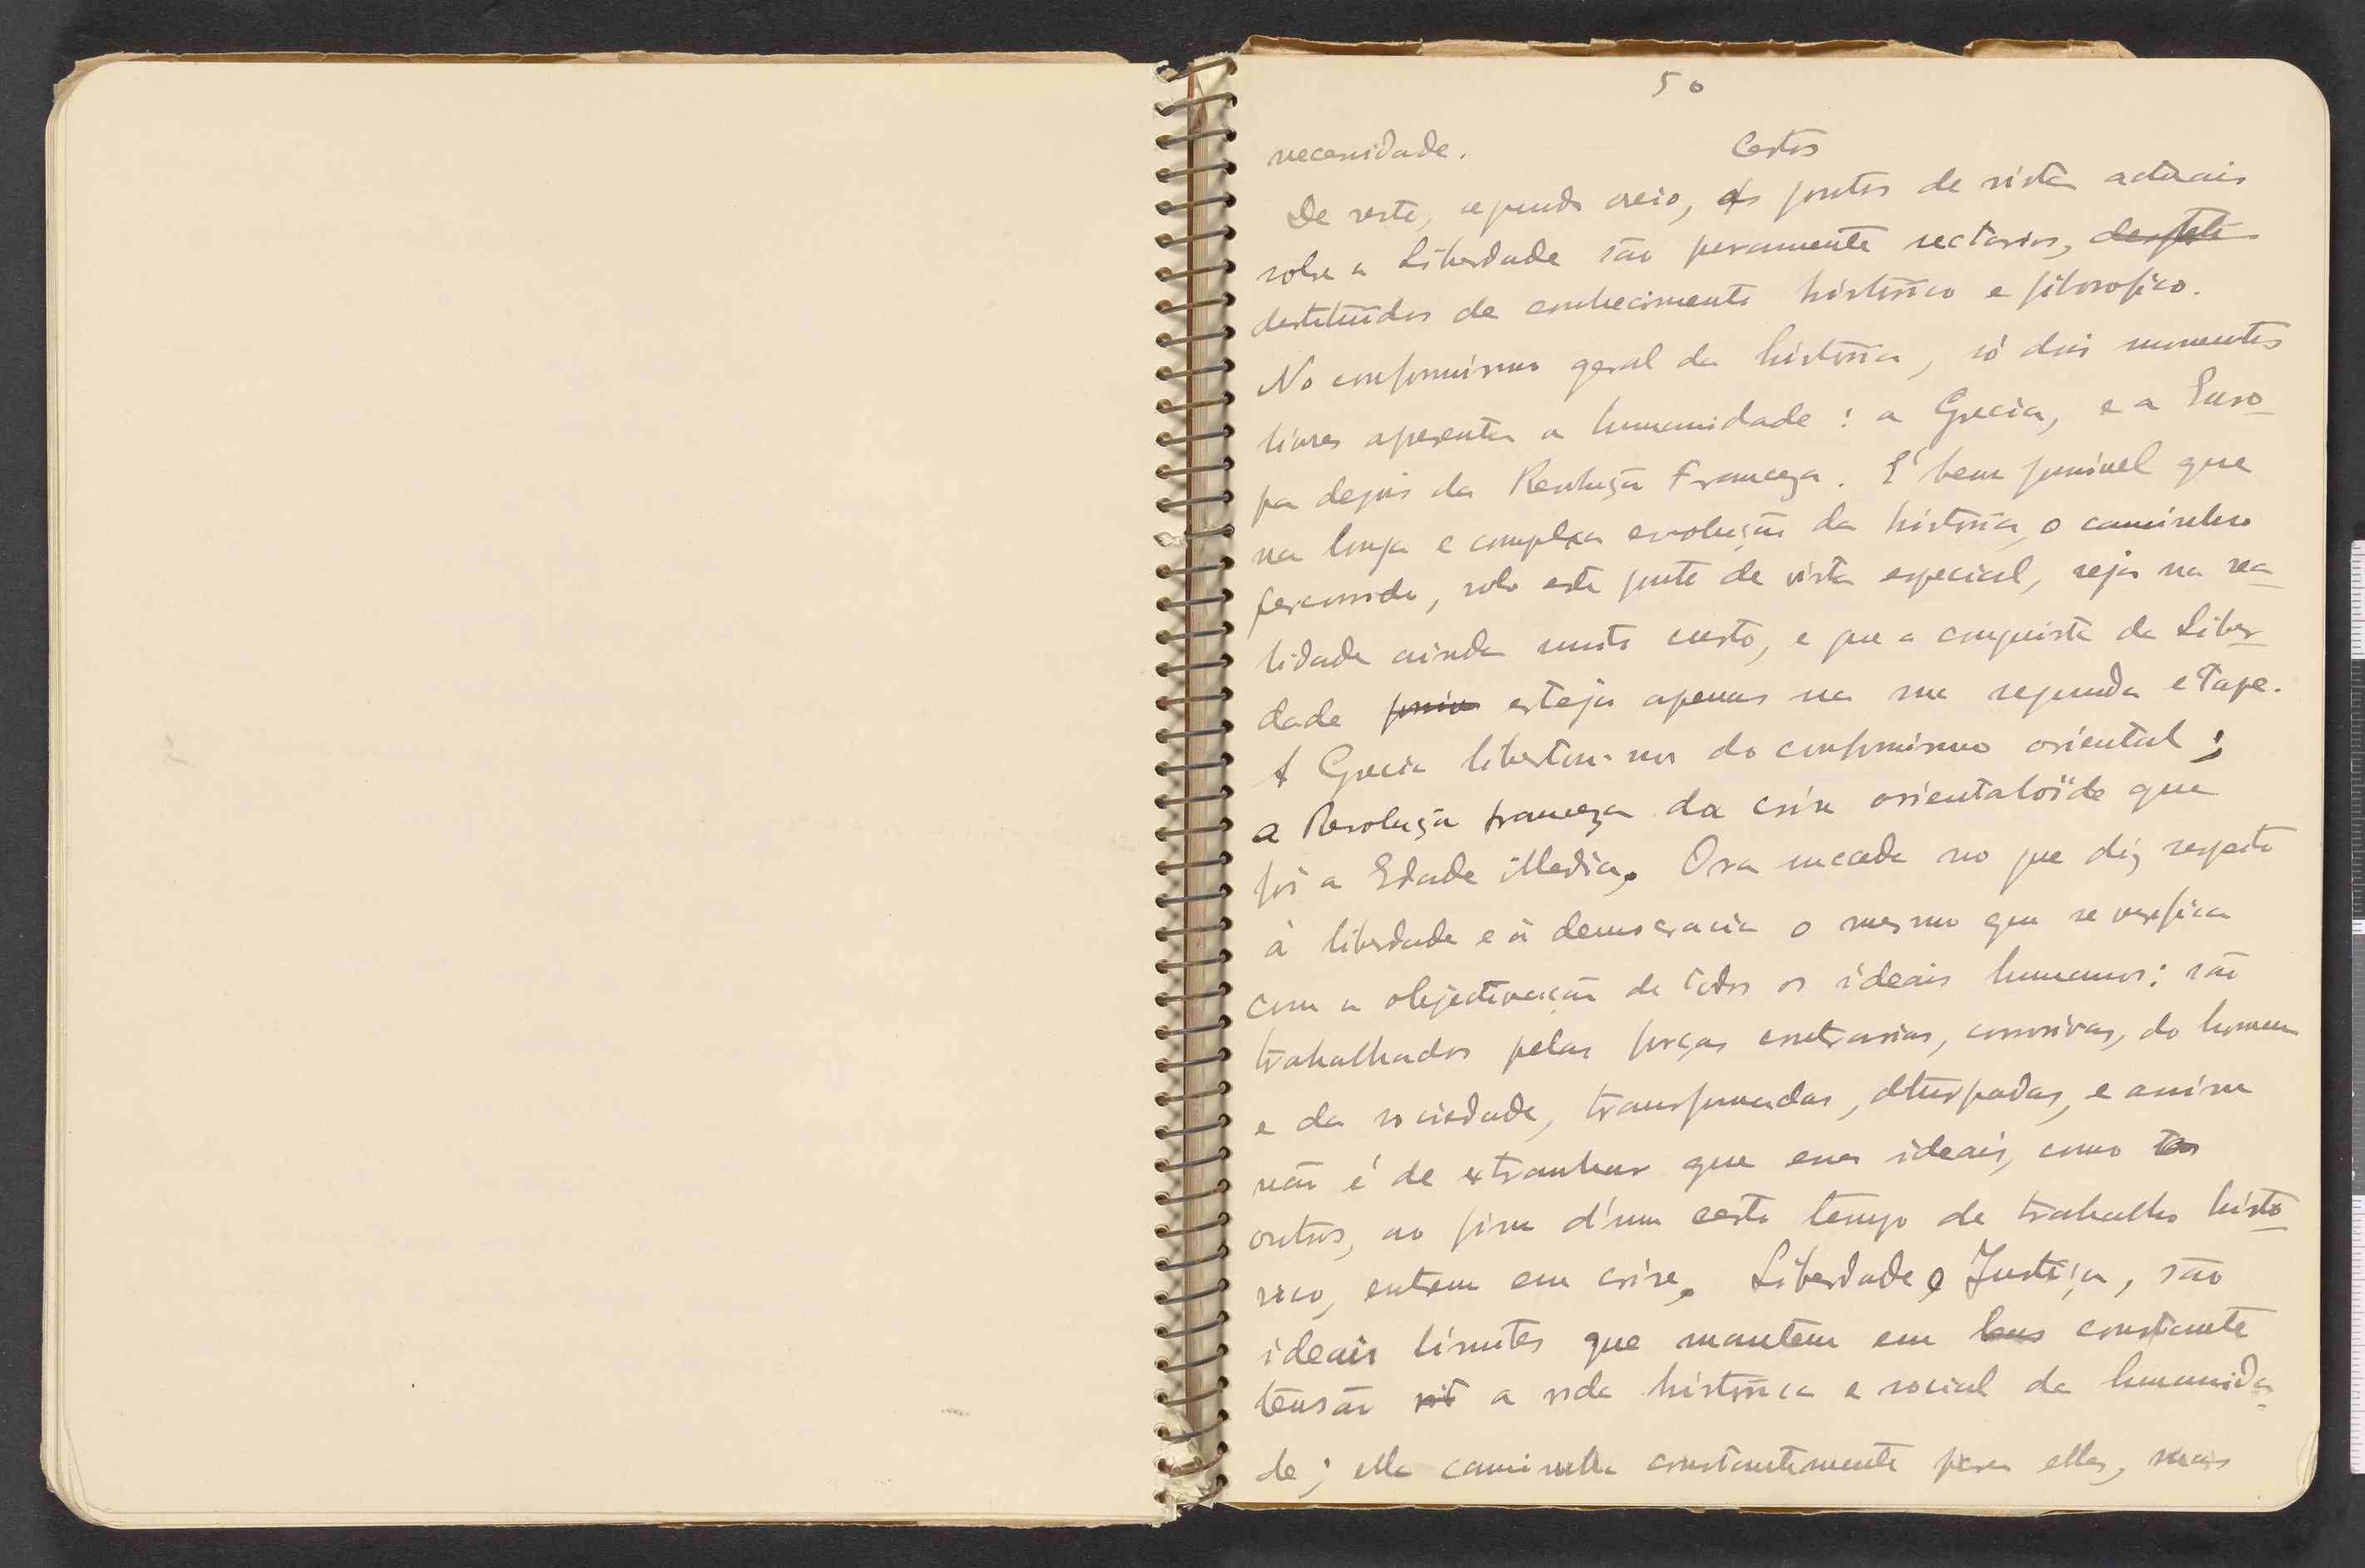 50
necessidade.
Certos
De resto, segundo creio, os pontos de vista actuais
sobre a Liberdade são puramente sectarios,
destituidos de conhecimento histórico e filosofico.
No conformismo geral da história, só dois momentos
livres apresenta a humanidade: a Grecia, e a Euro-
pa depois da Revolução Franceza. É bem possivel que
na longa e complexa evolução da história, o caminho
percorrido, sob este ponto de vista especial, seja na rea-
lidade ainda muito curto, e que a conquista da Liber-
dade esteja apenas na sua segunda etape.
A Grecia libertou-nos do conformismo oriental;
a Revolução franceza da crise orientaloïde que
foi a Edade Media. Ora sucede no que diz respeito
à liberdade e à democracia o mesmo que se verifica
com a objectivação de todos os ideais humanos: são
trabalhados pelas forças contrarias, corrosivas, do homem
e da sociedade, transformadas, deturpadas, e assim
não é de extranhar que esses ideais, como
outros, ao fim d'um certo tempo de trabalho histo-
rico, entrem em crise. Liberdade e Justiça, são
ideais limites que mantem em constante
tensão a vida histórica e social da humanida-
de; ella caminha constantemente para elles, mas